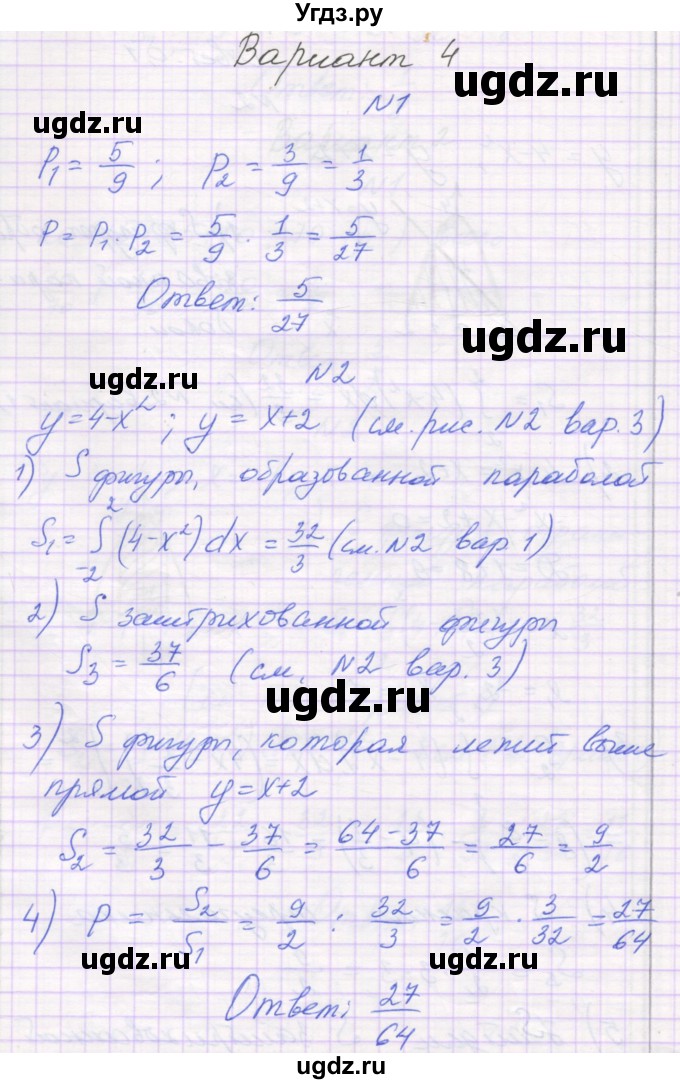 Угдз.ру
Вариант 4
ugdz.ru
N1
ugdz.ru
P₁ = 5/9 ; P₂ = 3/9 = 1/3
P = P₁ · P₂ = 5/9 · 1/3 = 5/27
Ответ: 5/27
ugdz.ru
ugdz.ru
N2
y=4-x²; y= x+2 (см. рис. N2 вар. 3)
1) S фигуры, образованной параболой
ugdz.ru
S₁ = ∫₋₂² (4-x²)dx = 32/3 (см. N2 вар 1)
ugdz.ru
2) S заштрихованной фигуры
S₃ = 37/6 (см. N2 вар. 3)
ugdz.ru
3) S фигуры, которая лежит выше
прямой y=x+2
ugdz.ru
S₂ = 32/3 - 37/6 = (64-37)/6 = 27/6 = 9/2
4) P = S₂/S₁ = 9/2 : 32/3 = 9/2 · 3/32 = 27/64
ugdz.ru
ugdz.ru
Ответ: 27/64
ugdz.ru